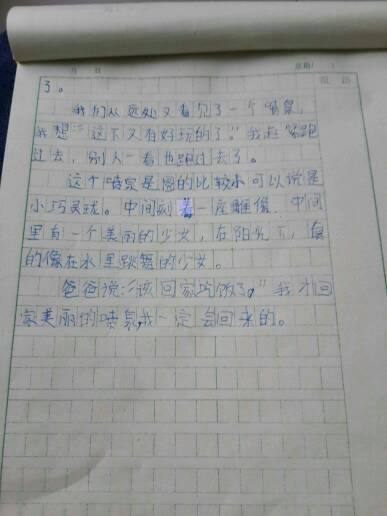 了。
我们从远处又看见了一个喷泉,
我想:“这下又有好玩的了。”我赶紧跑
过去,别人一看也跑过去了。
这个喷泉是圆的比较小可以说是
小巧灵珑。中间刻着一座雕像,中间
里有一个美丽的少女,在阳光下,真
的像在水里跳舞的少女。
爸爸说:“该回家吃饭了。”我才回
家美丽的喷泉,我一定会回来的。